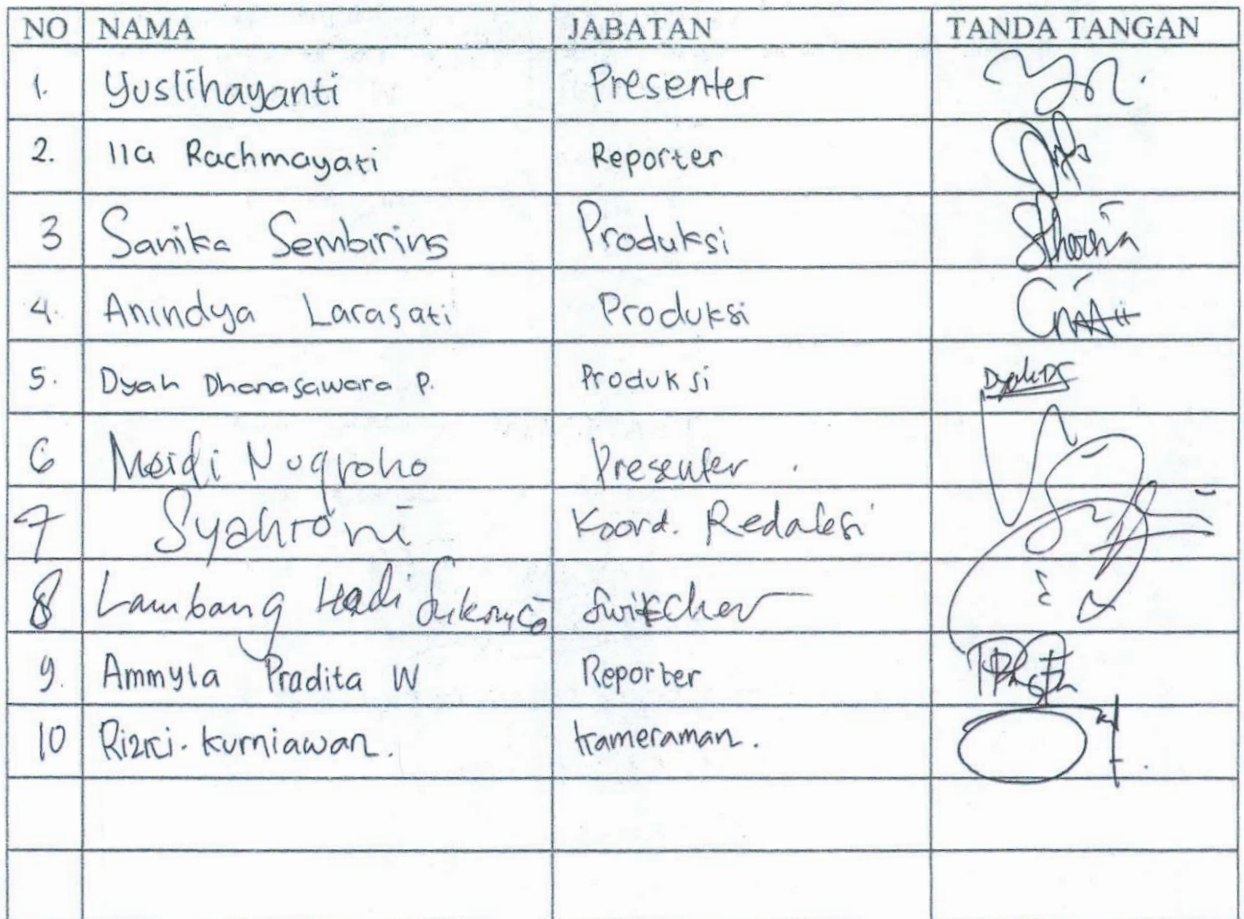 NO NAMA JABATAN TANDA TANGAN
1. Yuslihayanti Presenter
2. Ila Rachmayati Reporter
3 Sanika Sembiring Produksi
4. Anindya Larasati Produksi
5. Dyah Dhanasawara P. Produksi
6 Meidi Nugroho Presenter.
7 Syahroni Koord. Redaksi
8 Lambang Hadi Switcher
9. Ammyla Pradita W Reporter
10 Rizki Kurniawan. Kameraman.